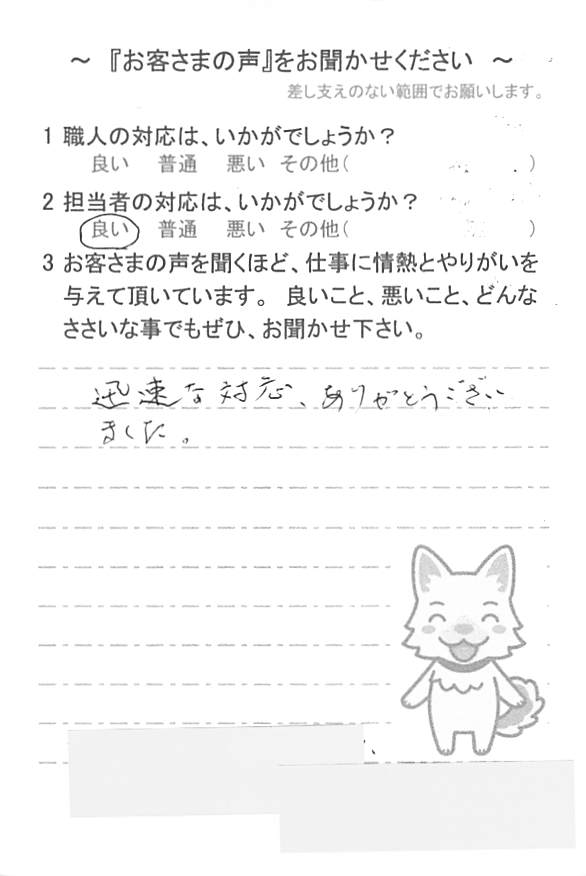 ～ 『お客さまの声』をお聞かせください ～
差し支えのない範囲でお願いします。
1 職人の対応は、いかがでしょうか？
良い 普通 悪い その他( )
2 担当者の対応は、いかがでしょうか？
良い 普通 悪い その他( )
3 お客さまの声を聞くほど、仕事に情熱とやりがいを
与えて頂いています。 良いこと、悪いこと、どんな
ささいな事でもぜひ、お聞かせ下さい。
迅速な対応、ありがとうござい
ました。